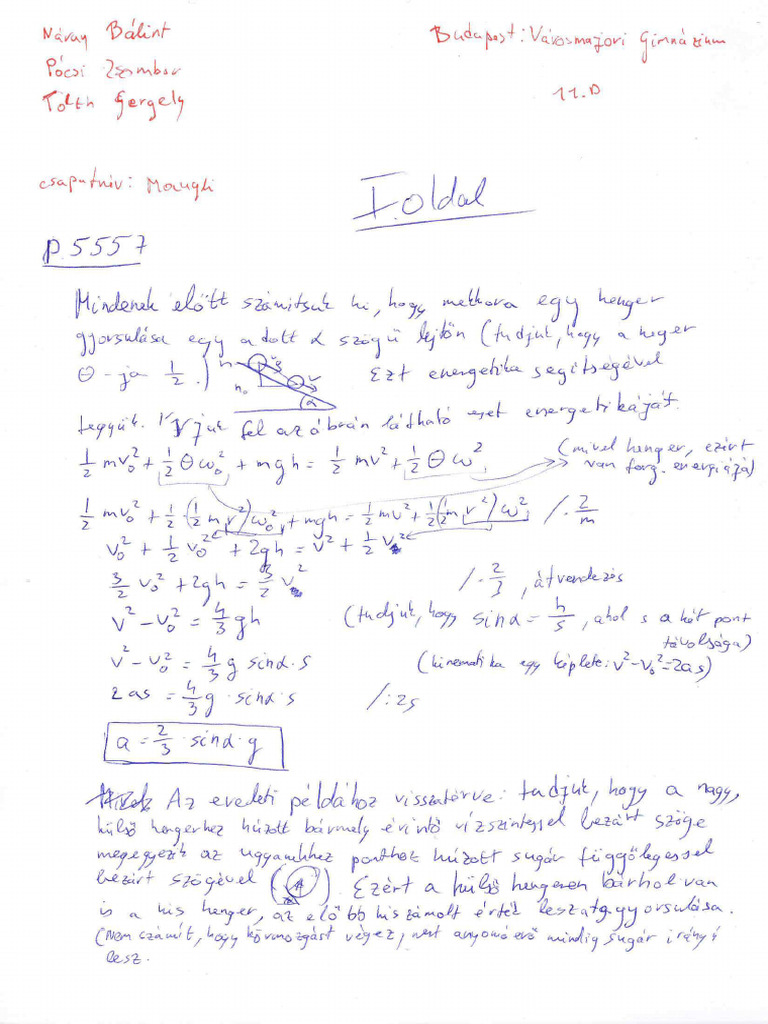 Náray Bálint
Budapest: Városmajori Gimnázium
Pócsi Zsombor
11.D
Tóth Gergely
csapatnév: Maugli
I. oldal
P.5557
Mindenek előtt számítsuk ki, hogy mekkora egy henger
gyorsulása egy adott α szögű lejtőn (tudjuk, hogy a heger
Θ-ja 1/2.) Ezt energetika segítségével
h₀ v α
tegyük. Írjuk fel az ábrán látható eset energetikáját.
1/2 mv₀² + 1/2 Θω₀² + mgh = 1/2 mv² + 1/2 Θω² (mivel henger, ezért
van forg. energiája)
1/2 mv₀² + 1/2·(1/2 m r²)ω₀² + mgh = 1/2 mv² + 1/2(1/2 m r²)ω² /·2/m
v₀² + 1/2 v₀² + 2gh = v² + 1/2 v²
3/2 v₀² + 2gh = 3/2 v² /·2/3, átrendezés
v² - v₀² = 4/3 gh (tudjuk, hogy sinα = h/s, ahol s a két pont
távolsága)
v² - v₀² = 4/3 g sinα·s (kinematika egy képlete: v² - v₀² = 2as)
2as = 4/3 g·sinα·s /:2s
a = 2/3·sinα·g
Az eredeti példához visszatérve: tudjuk, hogy a nagy,
külső hengerhez húzott bármely érintő vízszintessel bezárt szöge
megegyezik az ugyanehhez ponthoz húzott sugár függőlegessel
bezárt szögével. Ezért a külső hengeren bárhol van
is a kis henger, az előbb kiszámolt érték lesz a gyorsulása.
(Nem számít, hogy körmozgást végez, mert anyomóerő mindig sugár irányú
lesz.